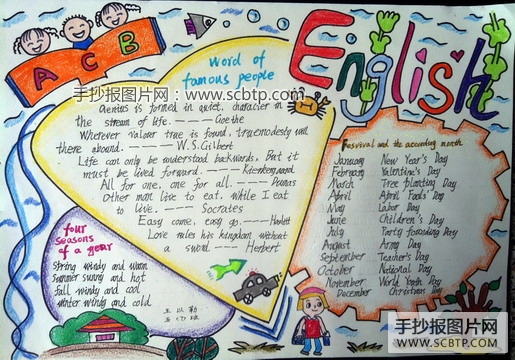 A C B
English
手抄报图片网：www.scbtp.com
Word of
famous people
Genius is formed in quiet, character in
the stream of life. ———— Goethe
Wherever valour true is found, true modesty will
there abound. ———— W.S.Gilbert
Life can only be understood backwards, But it
must be lived forward. ————
All for one, one for all. ———— Dumas
Other man live to eat, while I eat
to live. ———— Socrates
Easy come, easy go. ———— Hazlett
Love rules his kingdom without
a sword ———— Herbert
four
seasons
of a year
String windy and warm
summer sunny and hot
fall windy and cool
winter windy and cold
Festival and the according month
January New Year's Day
February Valentine's Day
March Tree planting Day
April April Fools' Day
May Labor Day
June Children's Day
July Party founding Day
August Army Day
September Teacher's Day
October National Day
November World Youth Day
December Christmas Day
手抄报图片网
WWW.SCBTP.COM